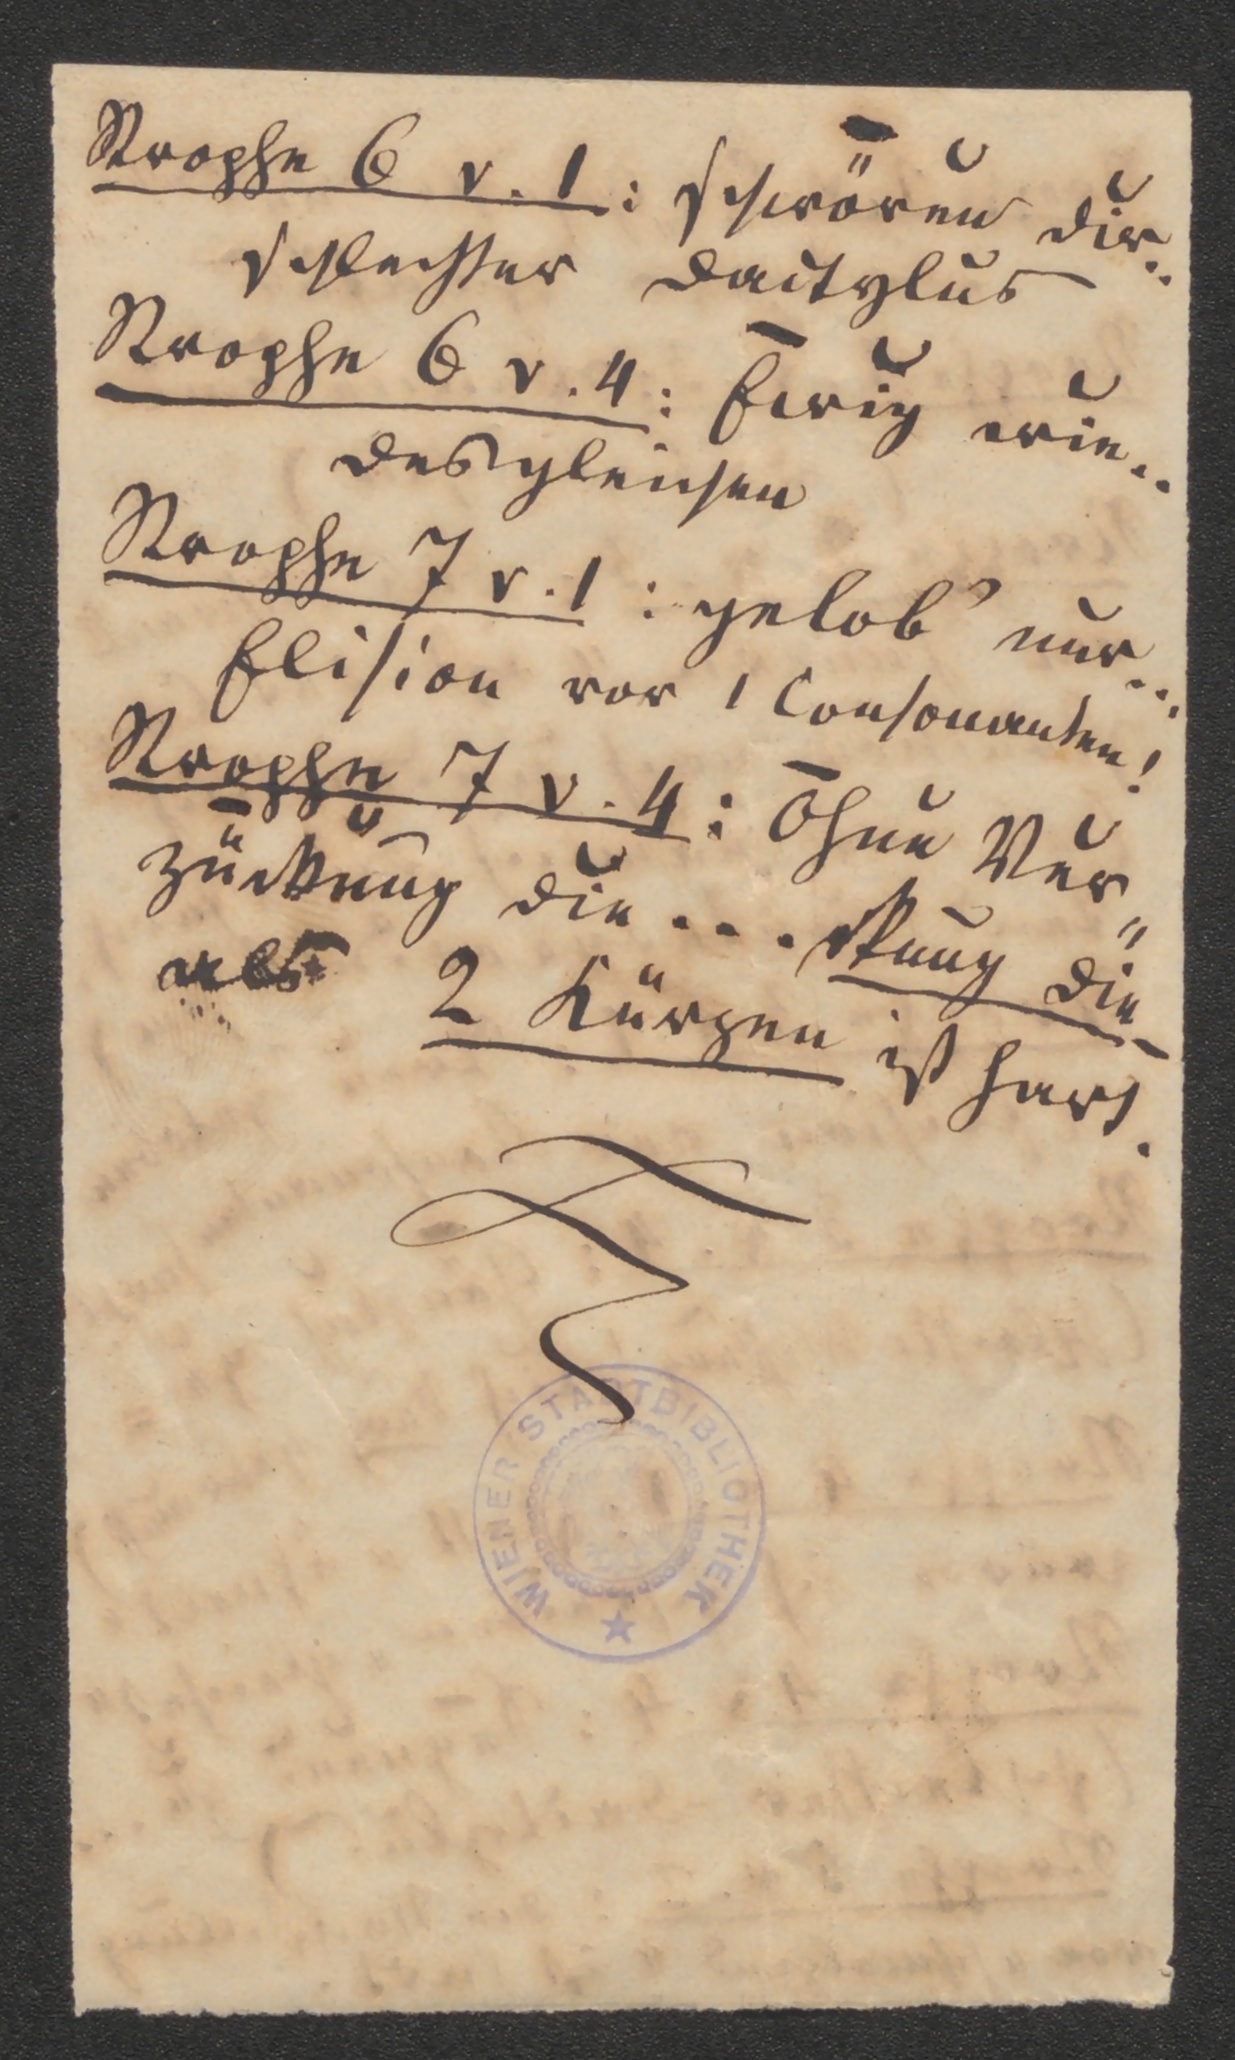 Strophe 6 v. 1: schwören dir..
schlechter Dactylus
Strophe 6 v. 4: Ewig wie..
desgleichen
Strophe 7 v. 1: gelob' nur...
Elision vor 1 Consonanten!
Strophe 7 v. 4: Ohne Ver
zückung die ... ckung die
als 2 Kürzen ist hart.
WIENER STADTBIBLIOTHEK